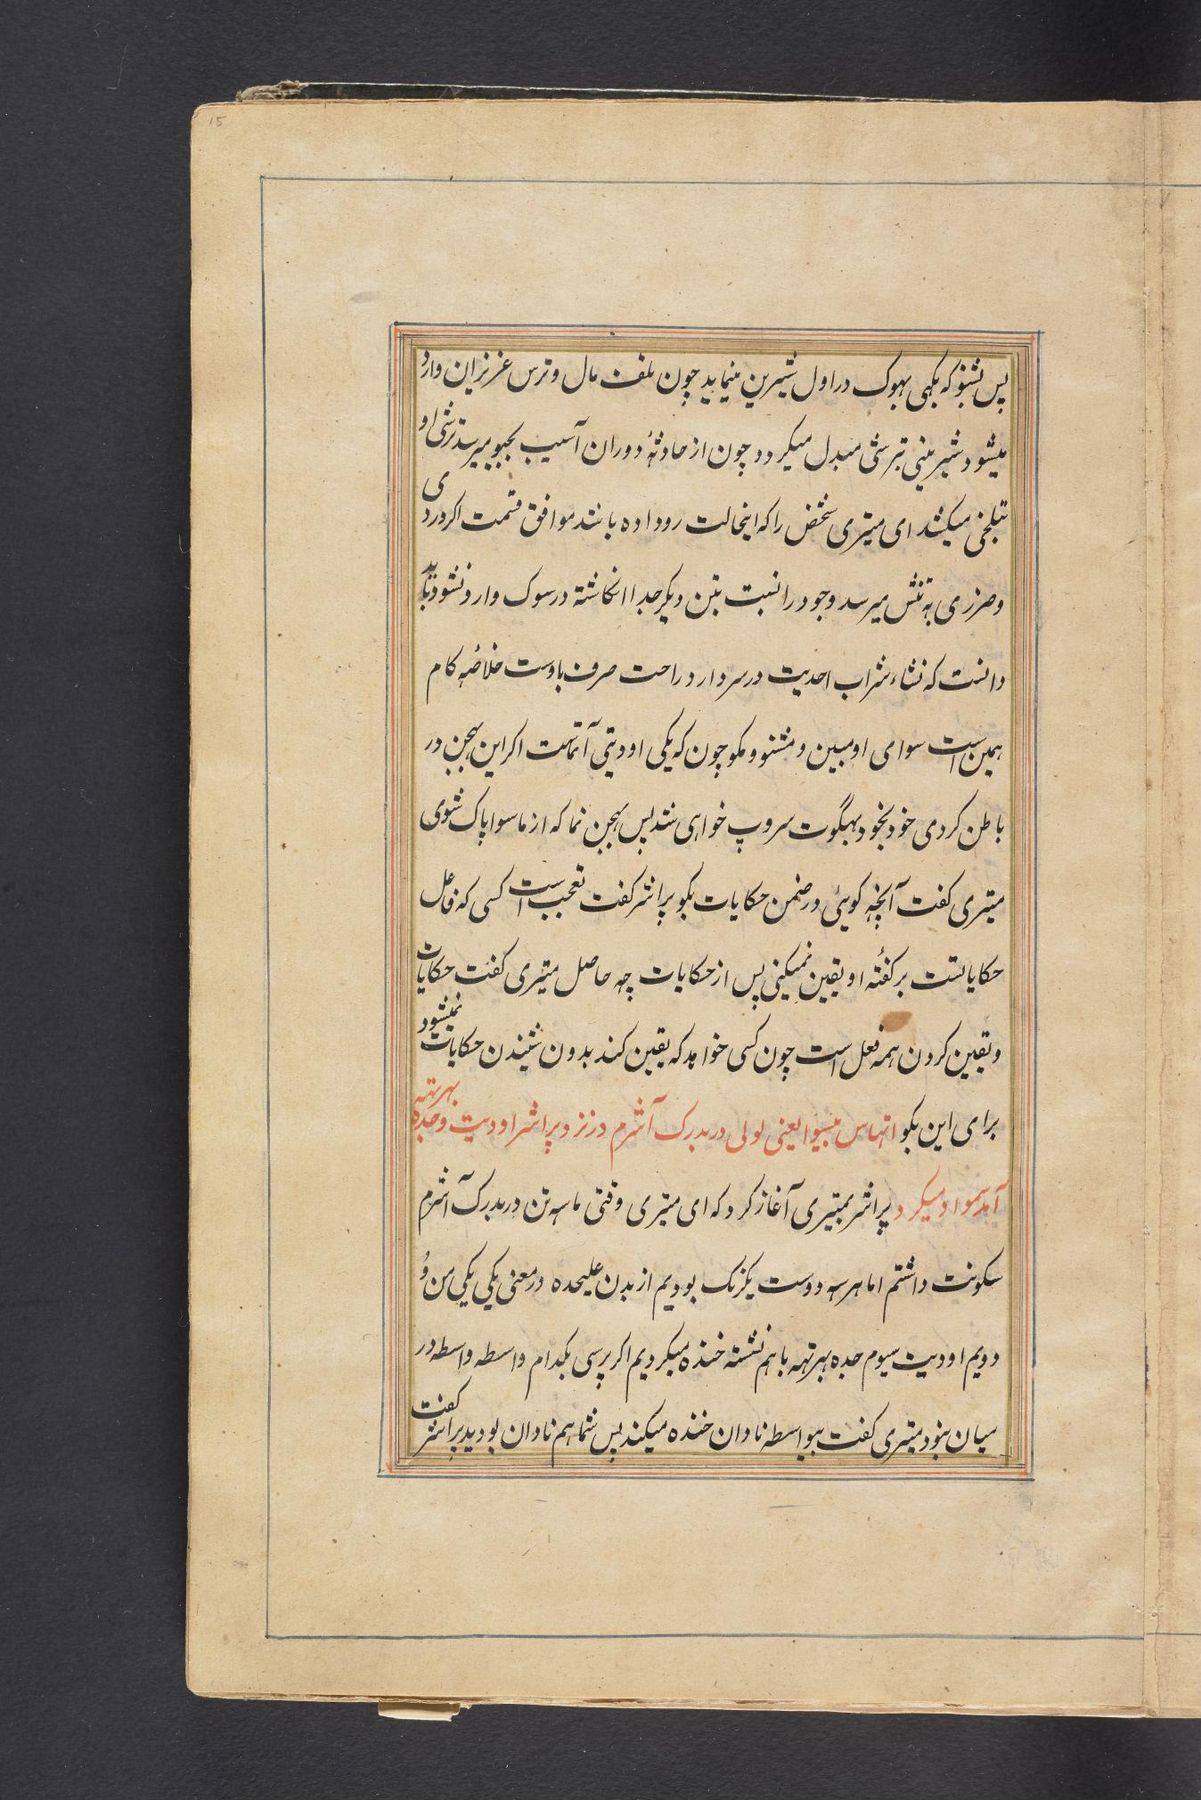 15
پس بشنو که بکهی بهوک در اول شیرین مینماید چون بلفت مال و ترس عزیزان وارد
میشود شیرینی بترشی مبدل میکردد چون از حادثهٔ دوران آسیب بجیو میرسد ترشی او
بتلخی میکشد ای میتری شخص را که اینحالت روداده باشد موافق قسمت اکر دردی
و ضرری به تنش میرسد وجود را نسبت بتن دیکر جدا انکاشته در سوک وارد نشود باید
دانست که نشاء شراب احدیت در سر دارد راحت صرف باوست خلاصه کلام
همین است سوای او مبین و مشنو و مکو چون که یکی اودیتی آتماست اکر این بهجن در
باطن کردی خود بخود بهگوت سروپ خواهی شد پس بهجن نما که از ماسوا پاک شوی
میتری کفت آنچه کوئی در ضمن حکایات بکو پراشر کفت تعجب است کسی که فاعل
حکایاتست بر کفتهٔ او یقین نمیکنی پس از حکایات چه حاصل میتری کفت حکایات
و یقین کردن همه فعل است چون کسی خواهد که یقین کند بدون شنیدن حکایات نمیشود
برای این بکو اتهاس بیسوا یعنی لولی در بدرک آشرم در نزد پراشر اودیت و جده بهرتهه
آمد سمواد میکرد پراشر بمیتری آغاز کرد که ای میتری وقتی ما سه تن در بدرک آشرم
سکونت داشتم اما هر سه دوست یکرنک بودیم از بدن علیحده در معنی یکی یکی من و
دویم اودیت سیوم جده بهرتهه باهم نشسته خنده میکردیم اکر پرسی بکدام واسطه واسطه در
میان نبود میتری کفت بیواسطه نادان خنده میکند پس شما هم نادان بودید پراشر کفت